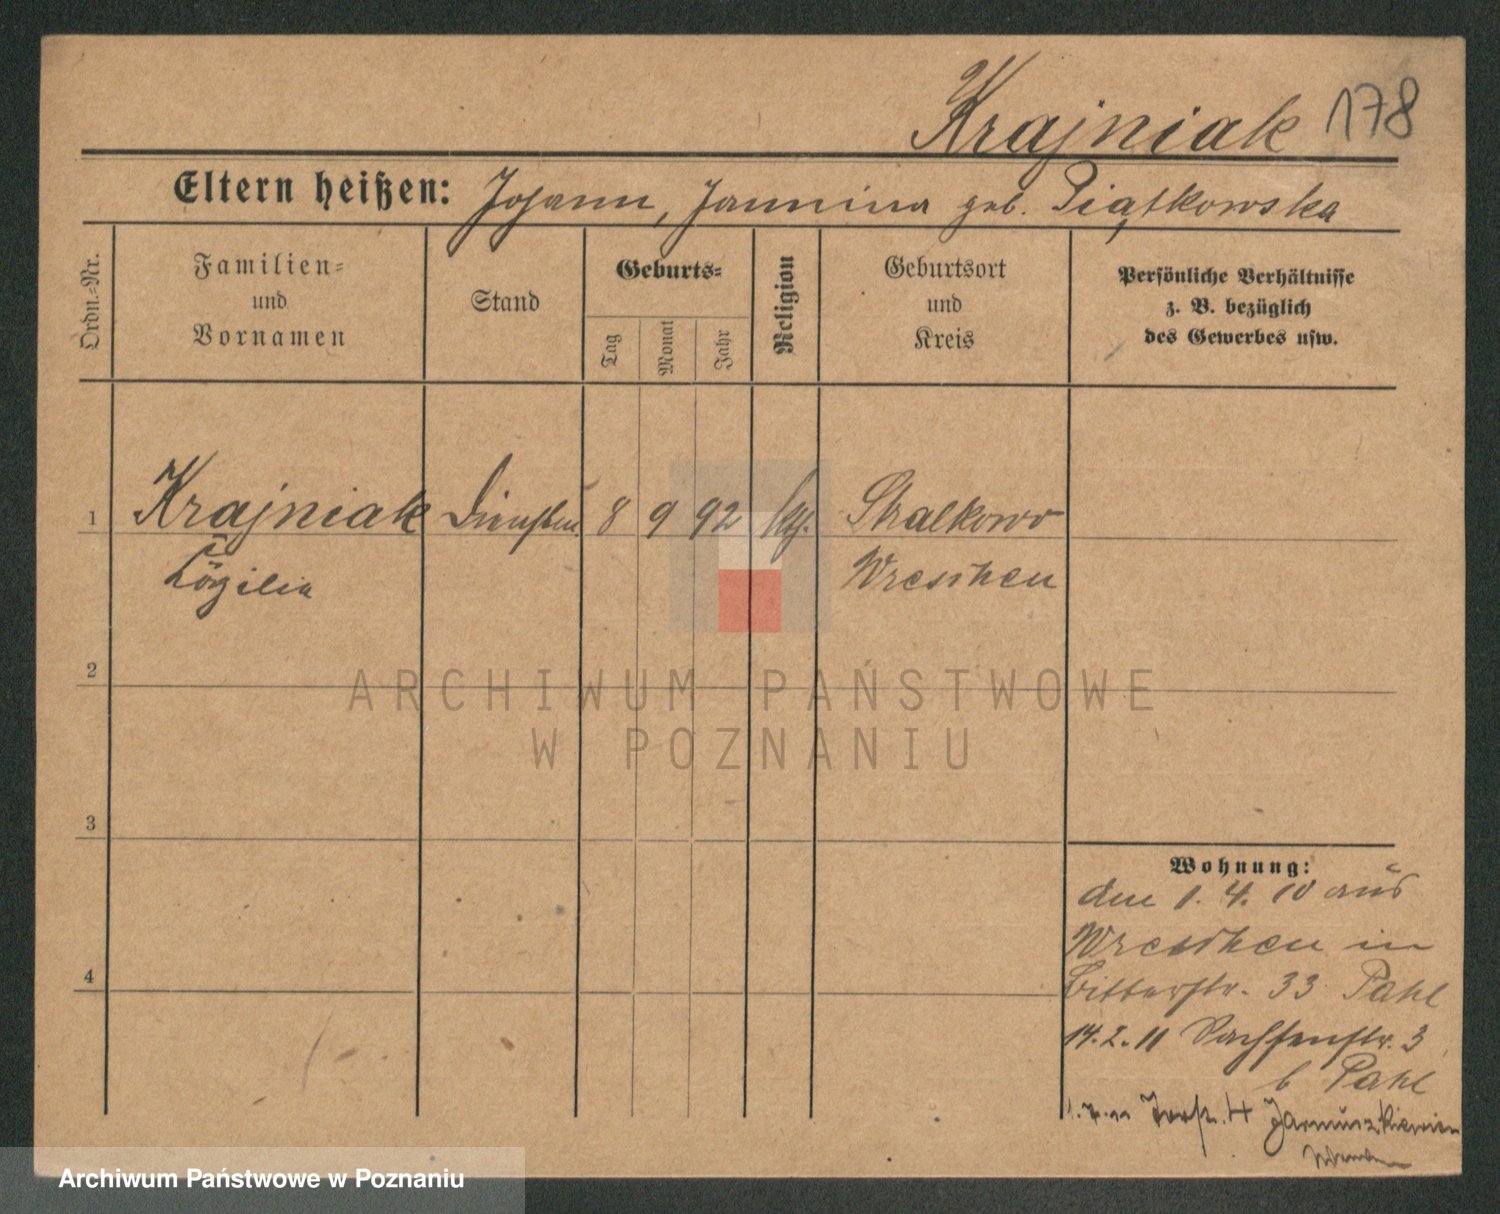 Krajniak 178
Eltern heißen: Johann, Jannina geb. Piątkowska
Ordn.-Nr.
Familien-
und
Vornamen
Stand
Geburts-
Tag
Monat
Jahr
Religion
Geburtsort
und
Kreis
Persönliche Verhältnisse
z. B. bezüglich
des Gewerbes usw.
1 Krajniak 8 9 92 Stralkowo
Wreschen
2
ARCHIWUM PAŃSTWOWE
W POZNANIU
3
Wohnung:
den 1. 4. 10 aus
Wreschen in
Bitterstr. 33 Pahl
4
14. 2. 11 Sachsenstr. 3
b Pahl
Archiwum Państwowe w Poznaniu